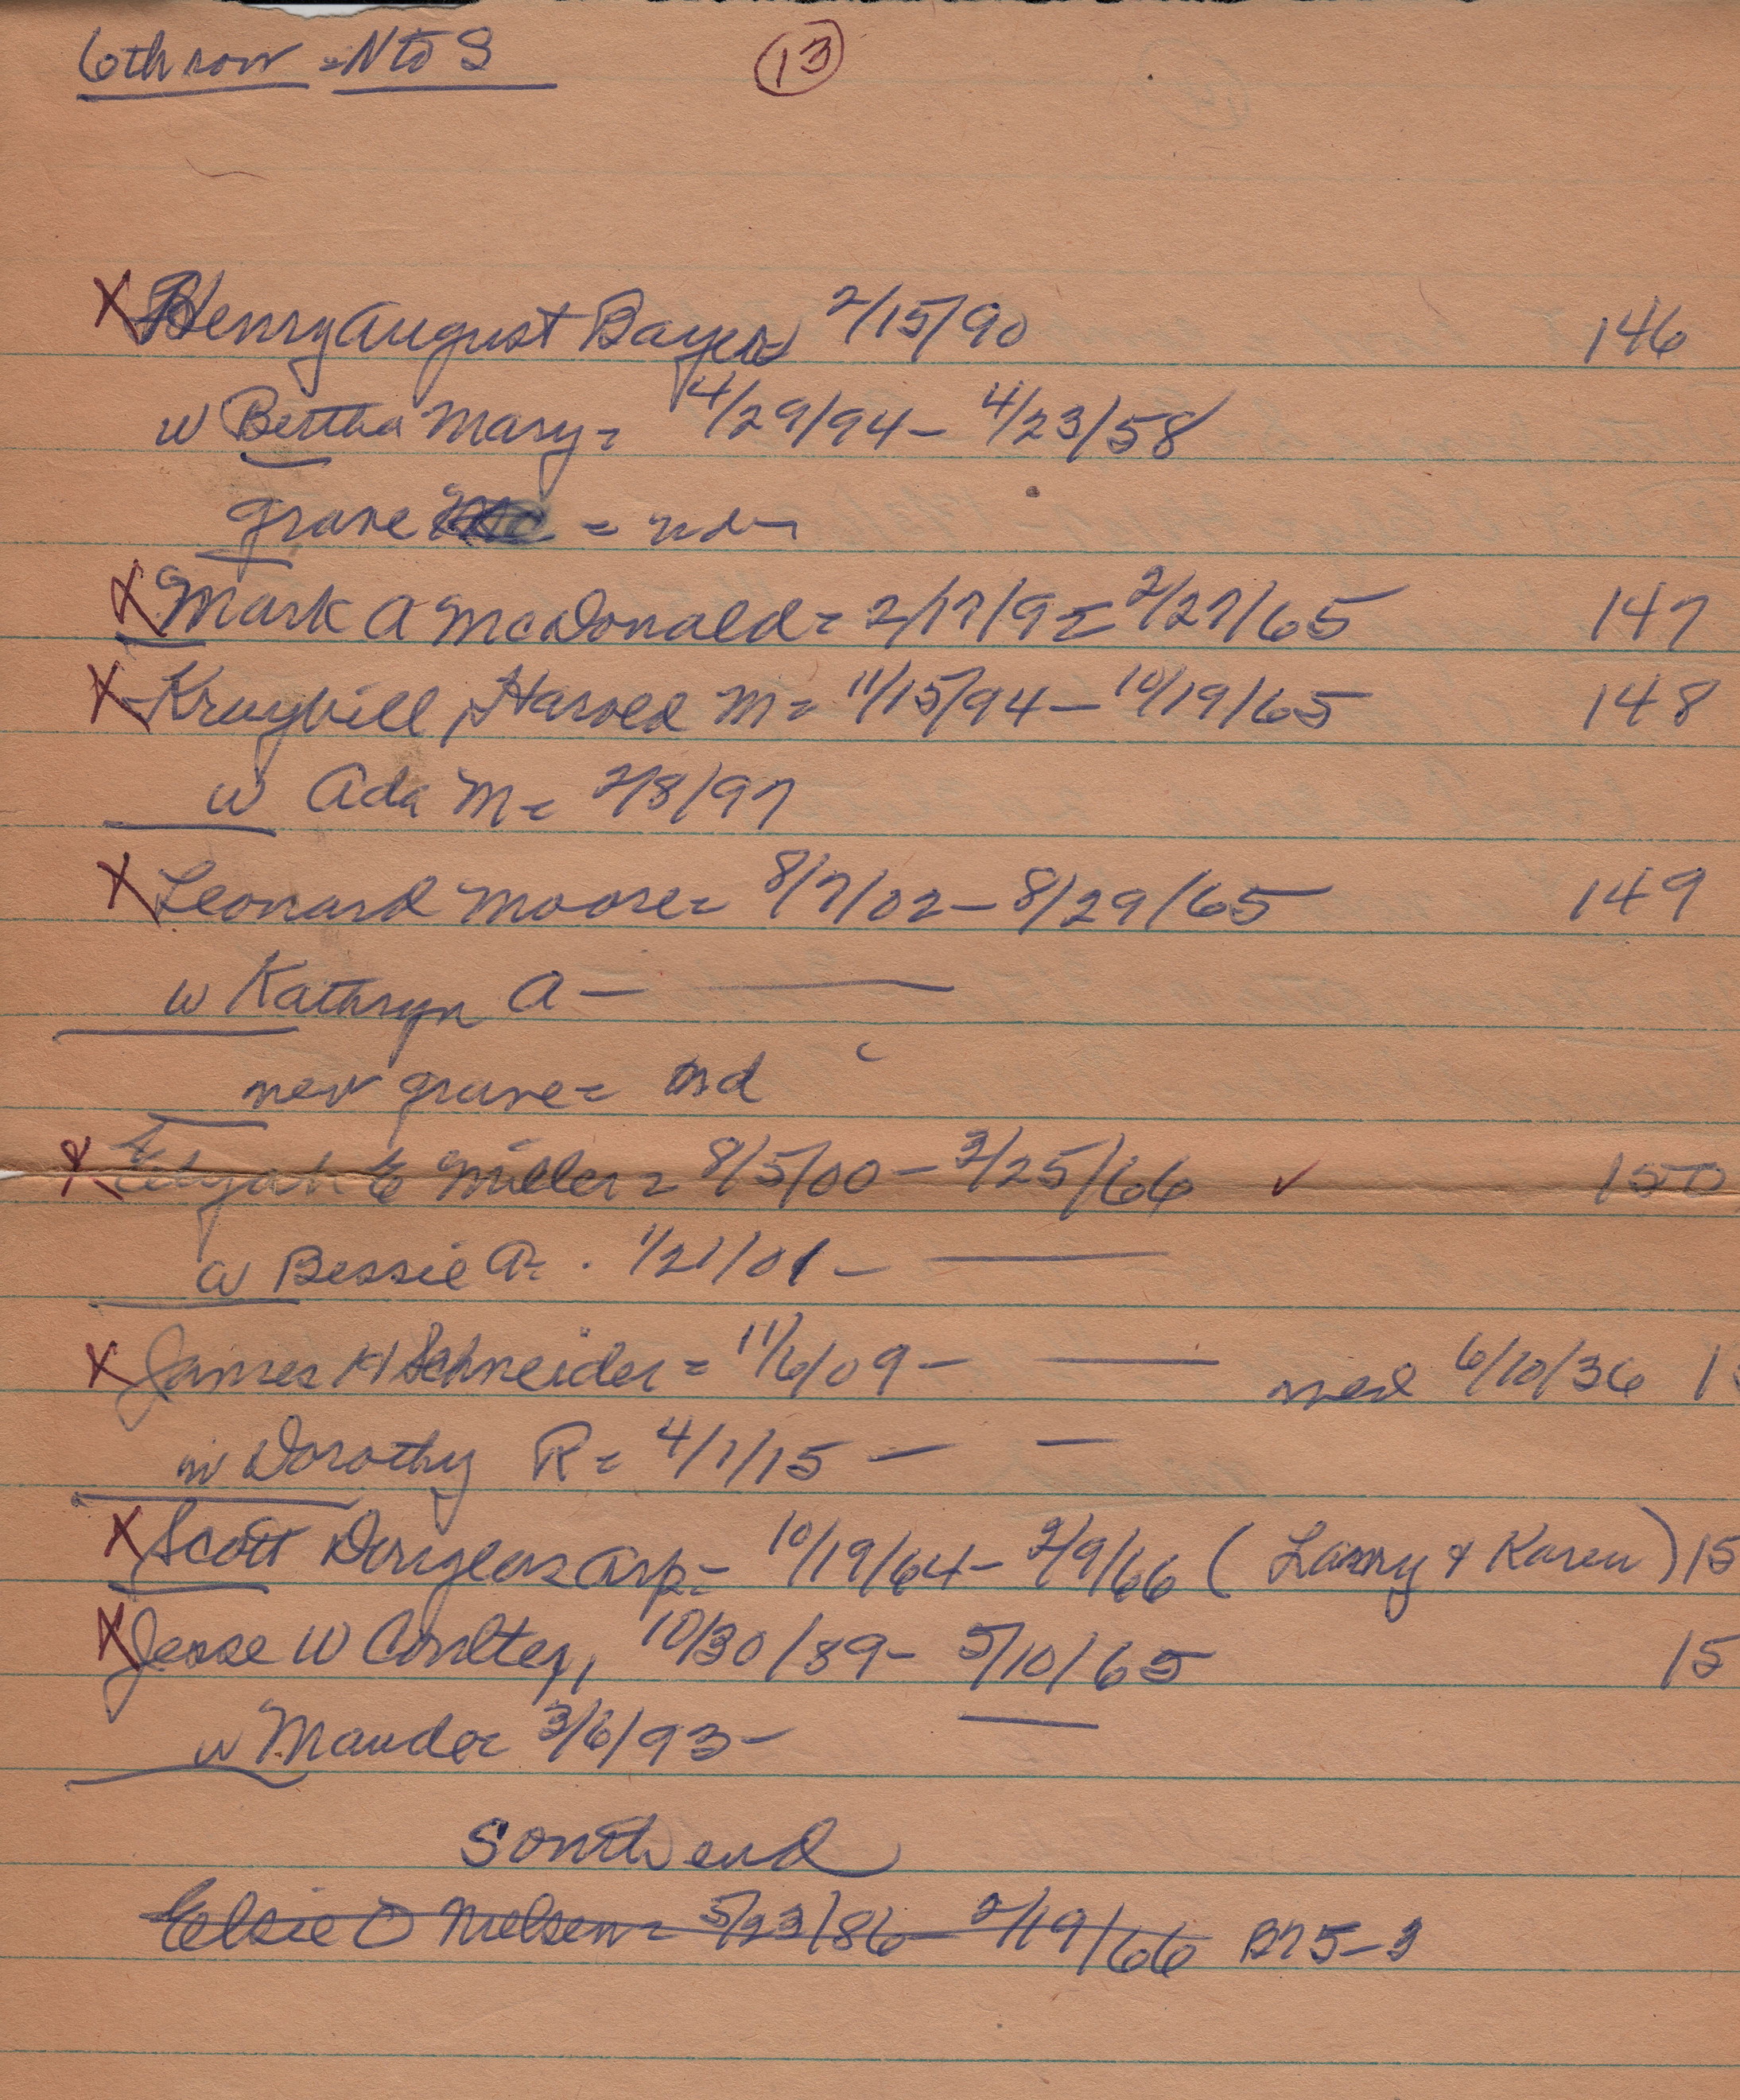 6th row = N to S
13
X Henry August Bayer = 2/15/90 146
w Bertha Mary = 4/29/94 - 4/23/58
grave = nd
X Mark A McDonald = 2/17/95 - 2/27/65 147
X Kraybill, Harold M = 11/15/94 - 10/19/65 148
w Ada M = 2/8/97
X Leonard Moore = 8/7/02 - 8/29/65 149
w Kathryn A - —
new grave = nd
X Elijah E Miller = 8/5/00 - 3/25/66 ✓ 150
w Bessie A = 1/21/01 - —
X James H Schneider = 11/6/09 - — med 6/10/36 1
w Dorothy R = 4/1/15 - —
X Scott Douglas Arp = 10/19/64 - 2/9/66 ( Larry & Karen ) 15
X Jesse W Coulter, 10/30/89 - 5/10/65 15
w Maude = 3/6/93 - —
South end
Elsie O Nielsen = 5/23/86 - 2/19/66 B75-3